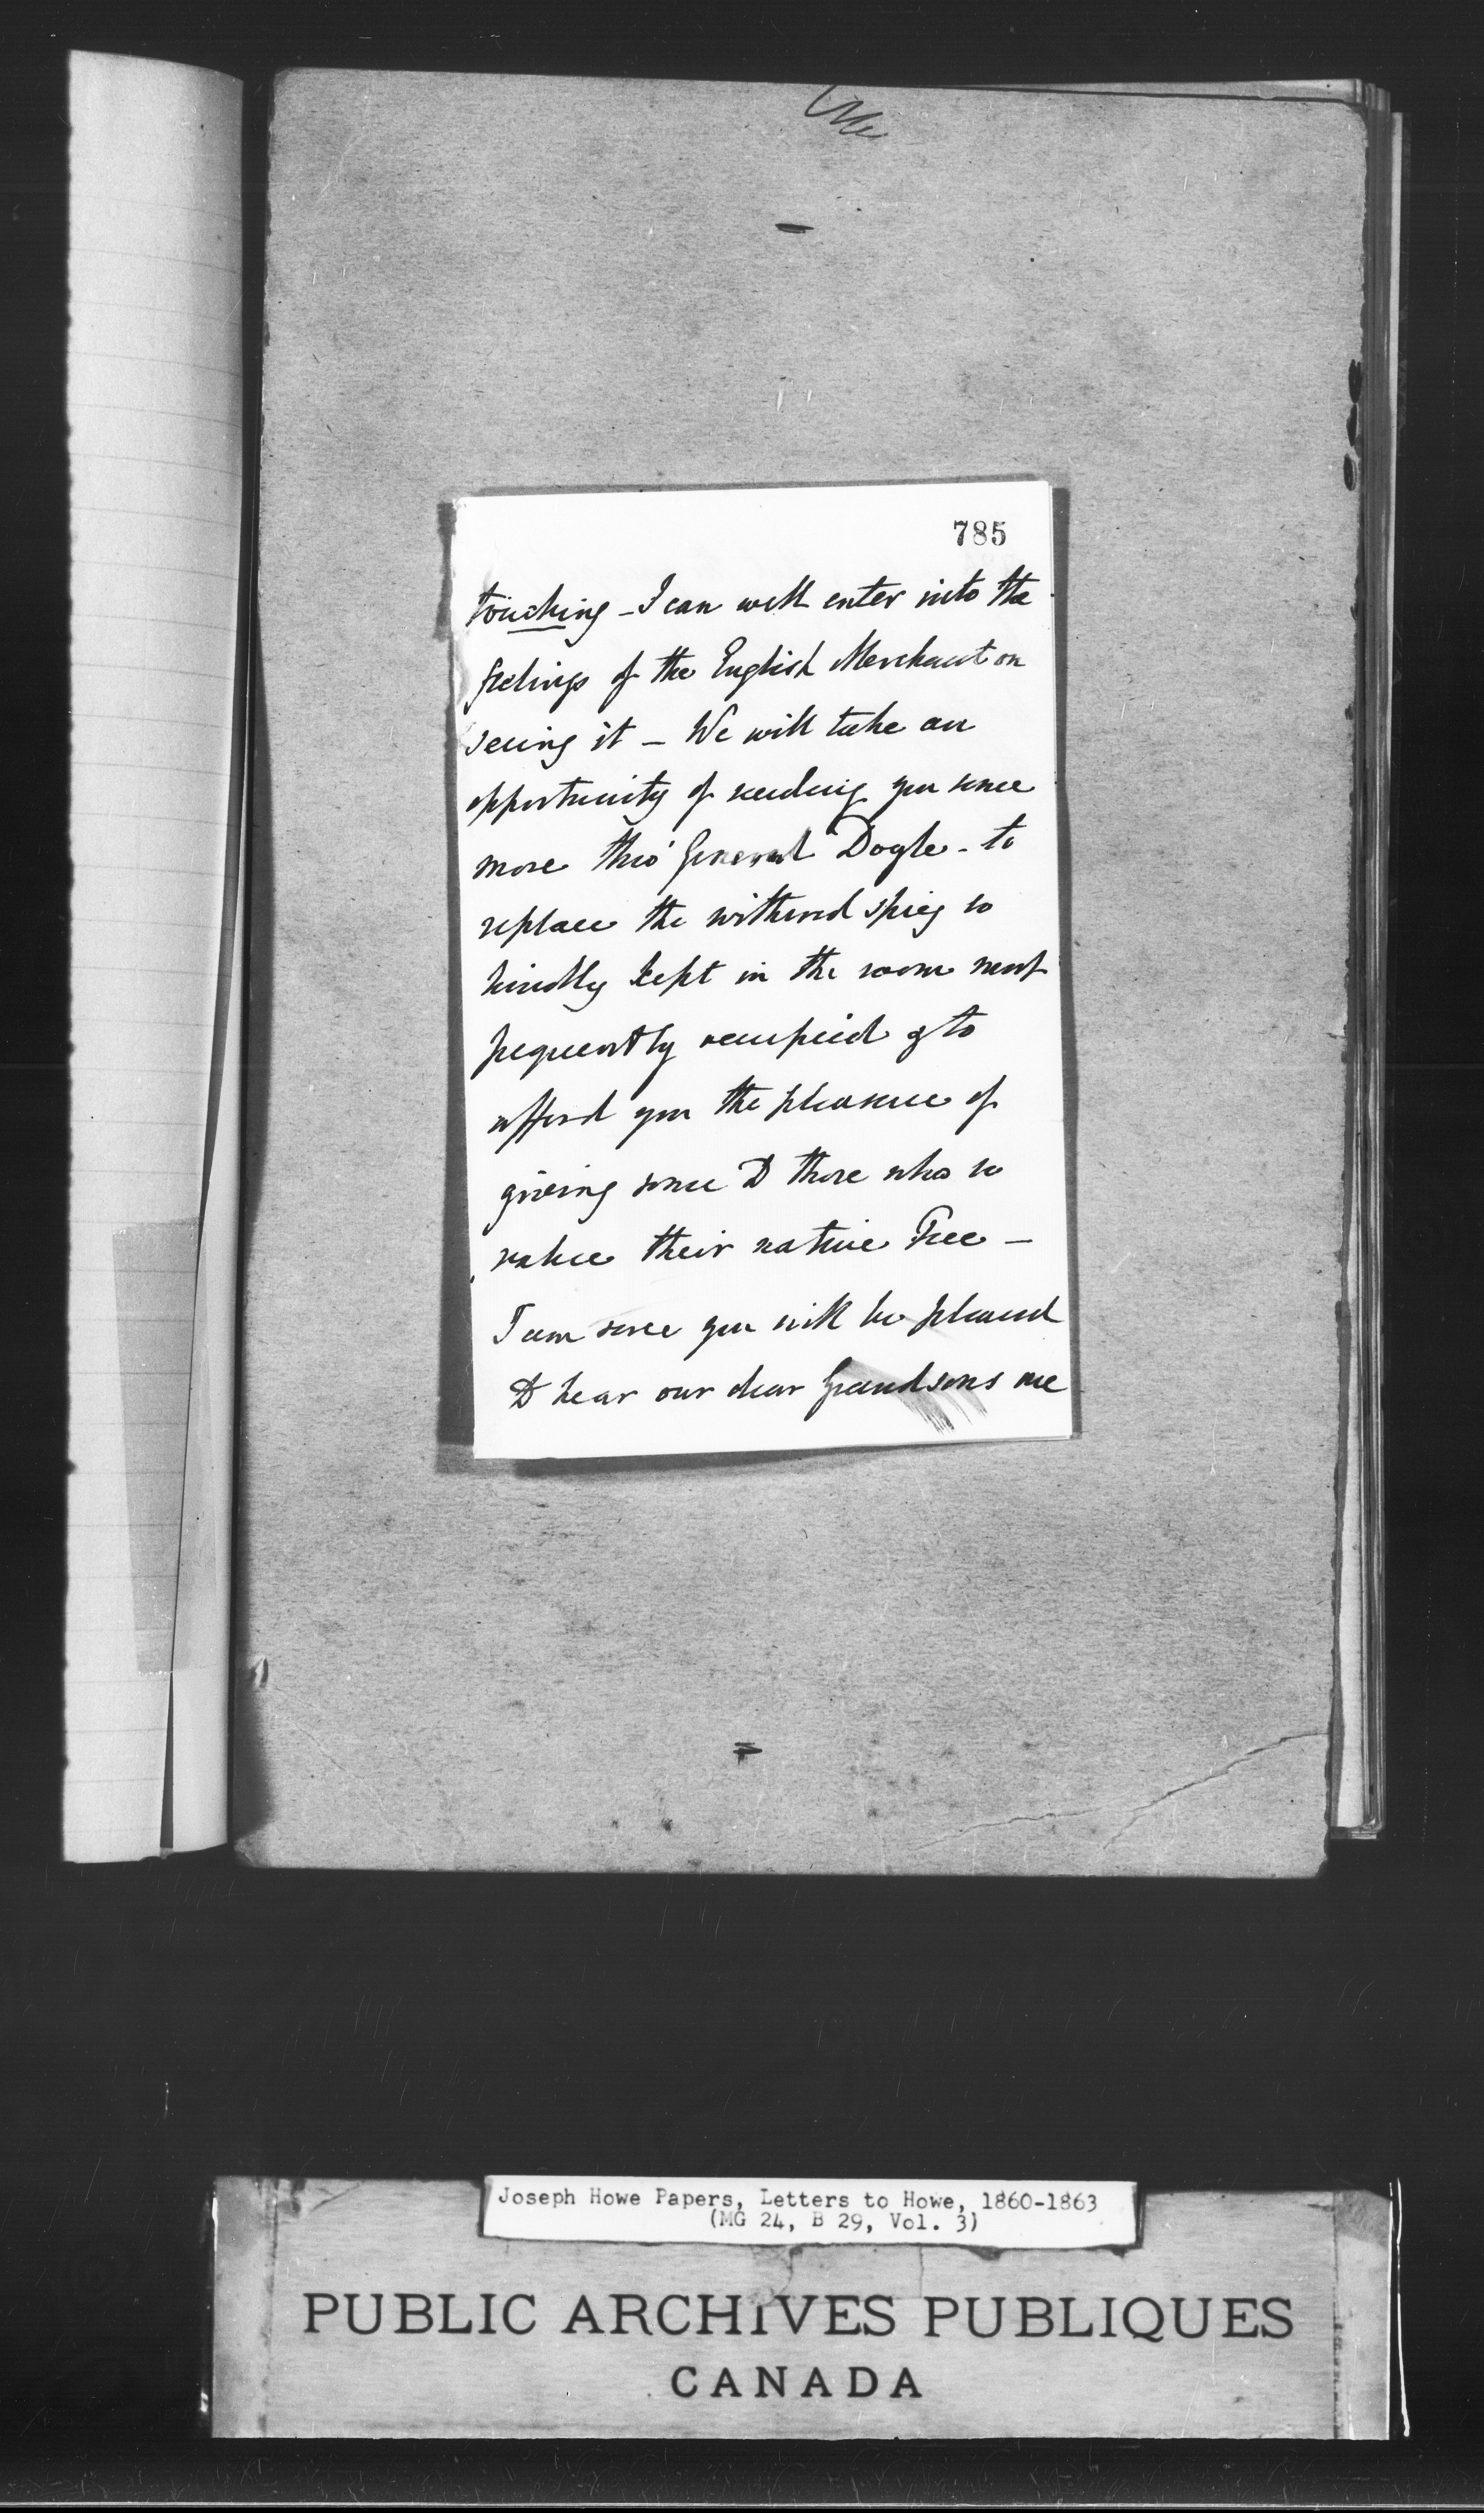 785
touching - I can well enter into the
feelings of the English Merchant on
seeing it - We will take an
opportunity of sending you some
more thro' General Doyle - to
replace the withered sprig so
kindly kept in the room most
frequently occupied & to
afford you the pleasure of
giving some to those who so
value their native Tree -
I am sure you will be pleased
to hear our dear Grandsons are
Joseph Howe Papers, Letters to Howe, 1860-1863
(MG 24, B 29, Vol. 3)
PUBLIC ARCHIVES PUBLIQUES
CANADA